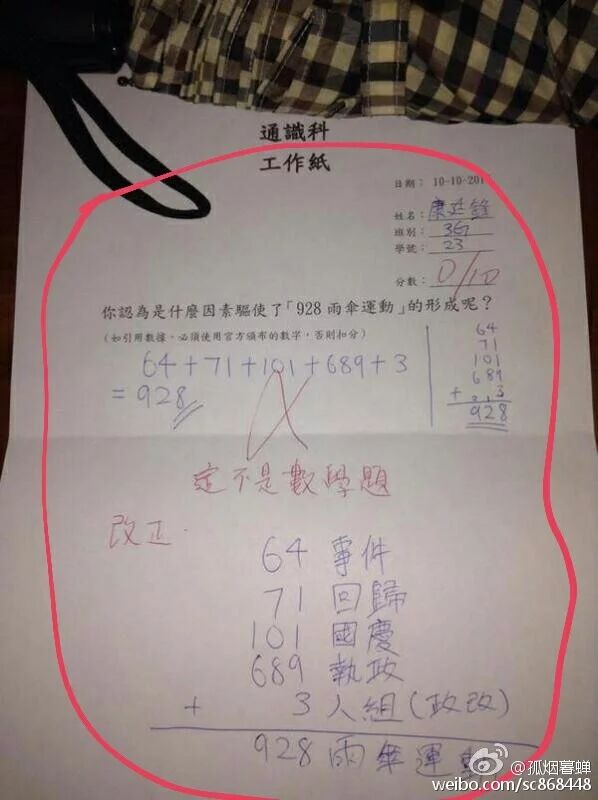 通識科
工作紙
日期： 10-10-201
姓名：康廷鋒
班別：3G
學號：23
分數：0/10
你認為是什麼因素驅使了「928雨傘運動」的形成呢？
(如引用數據，必須使用官方頒布的數字，否則扣分)
64+71+101+689+3
=928
64
71
101
689
+ 3
928
這不是數學題
改正
64 事件
71 回歸
101 國慶
689 執政
+ 3 人組(政改)
928 雨傘運動
@孤烟暮蝉
weibo.com/sc868448